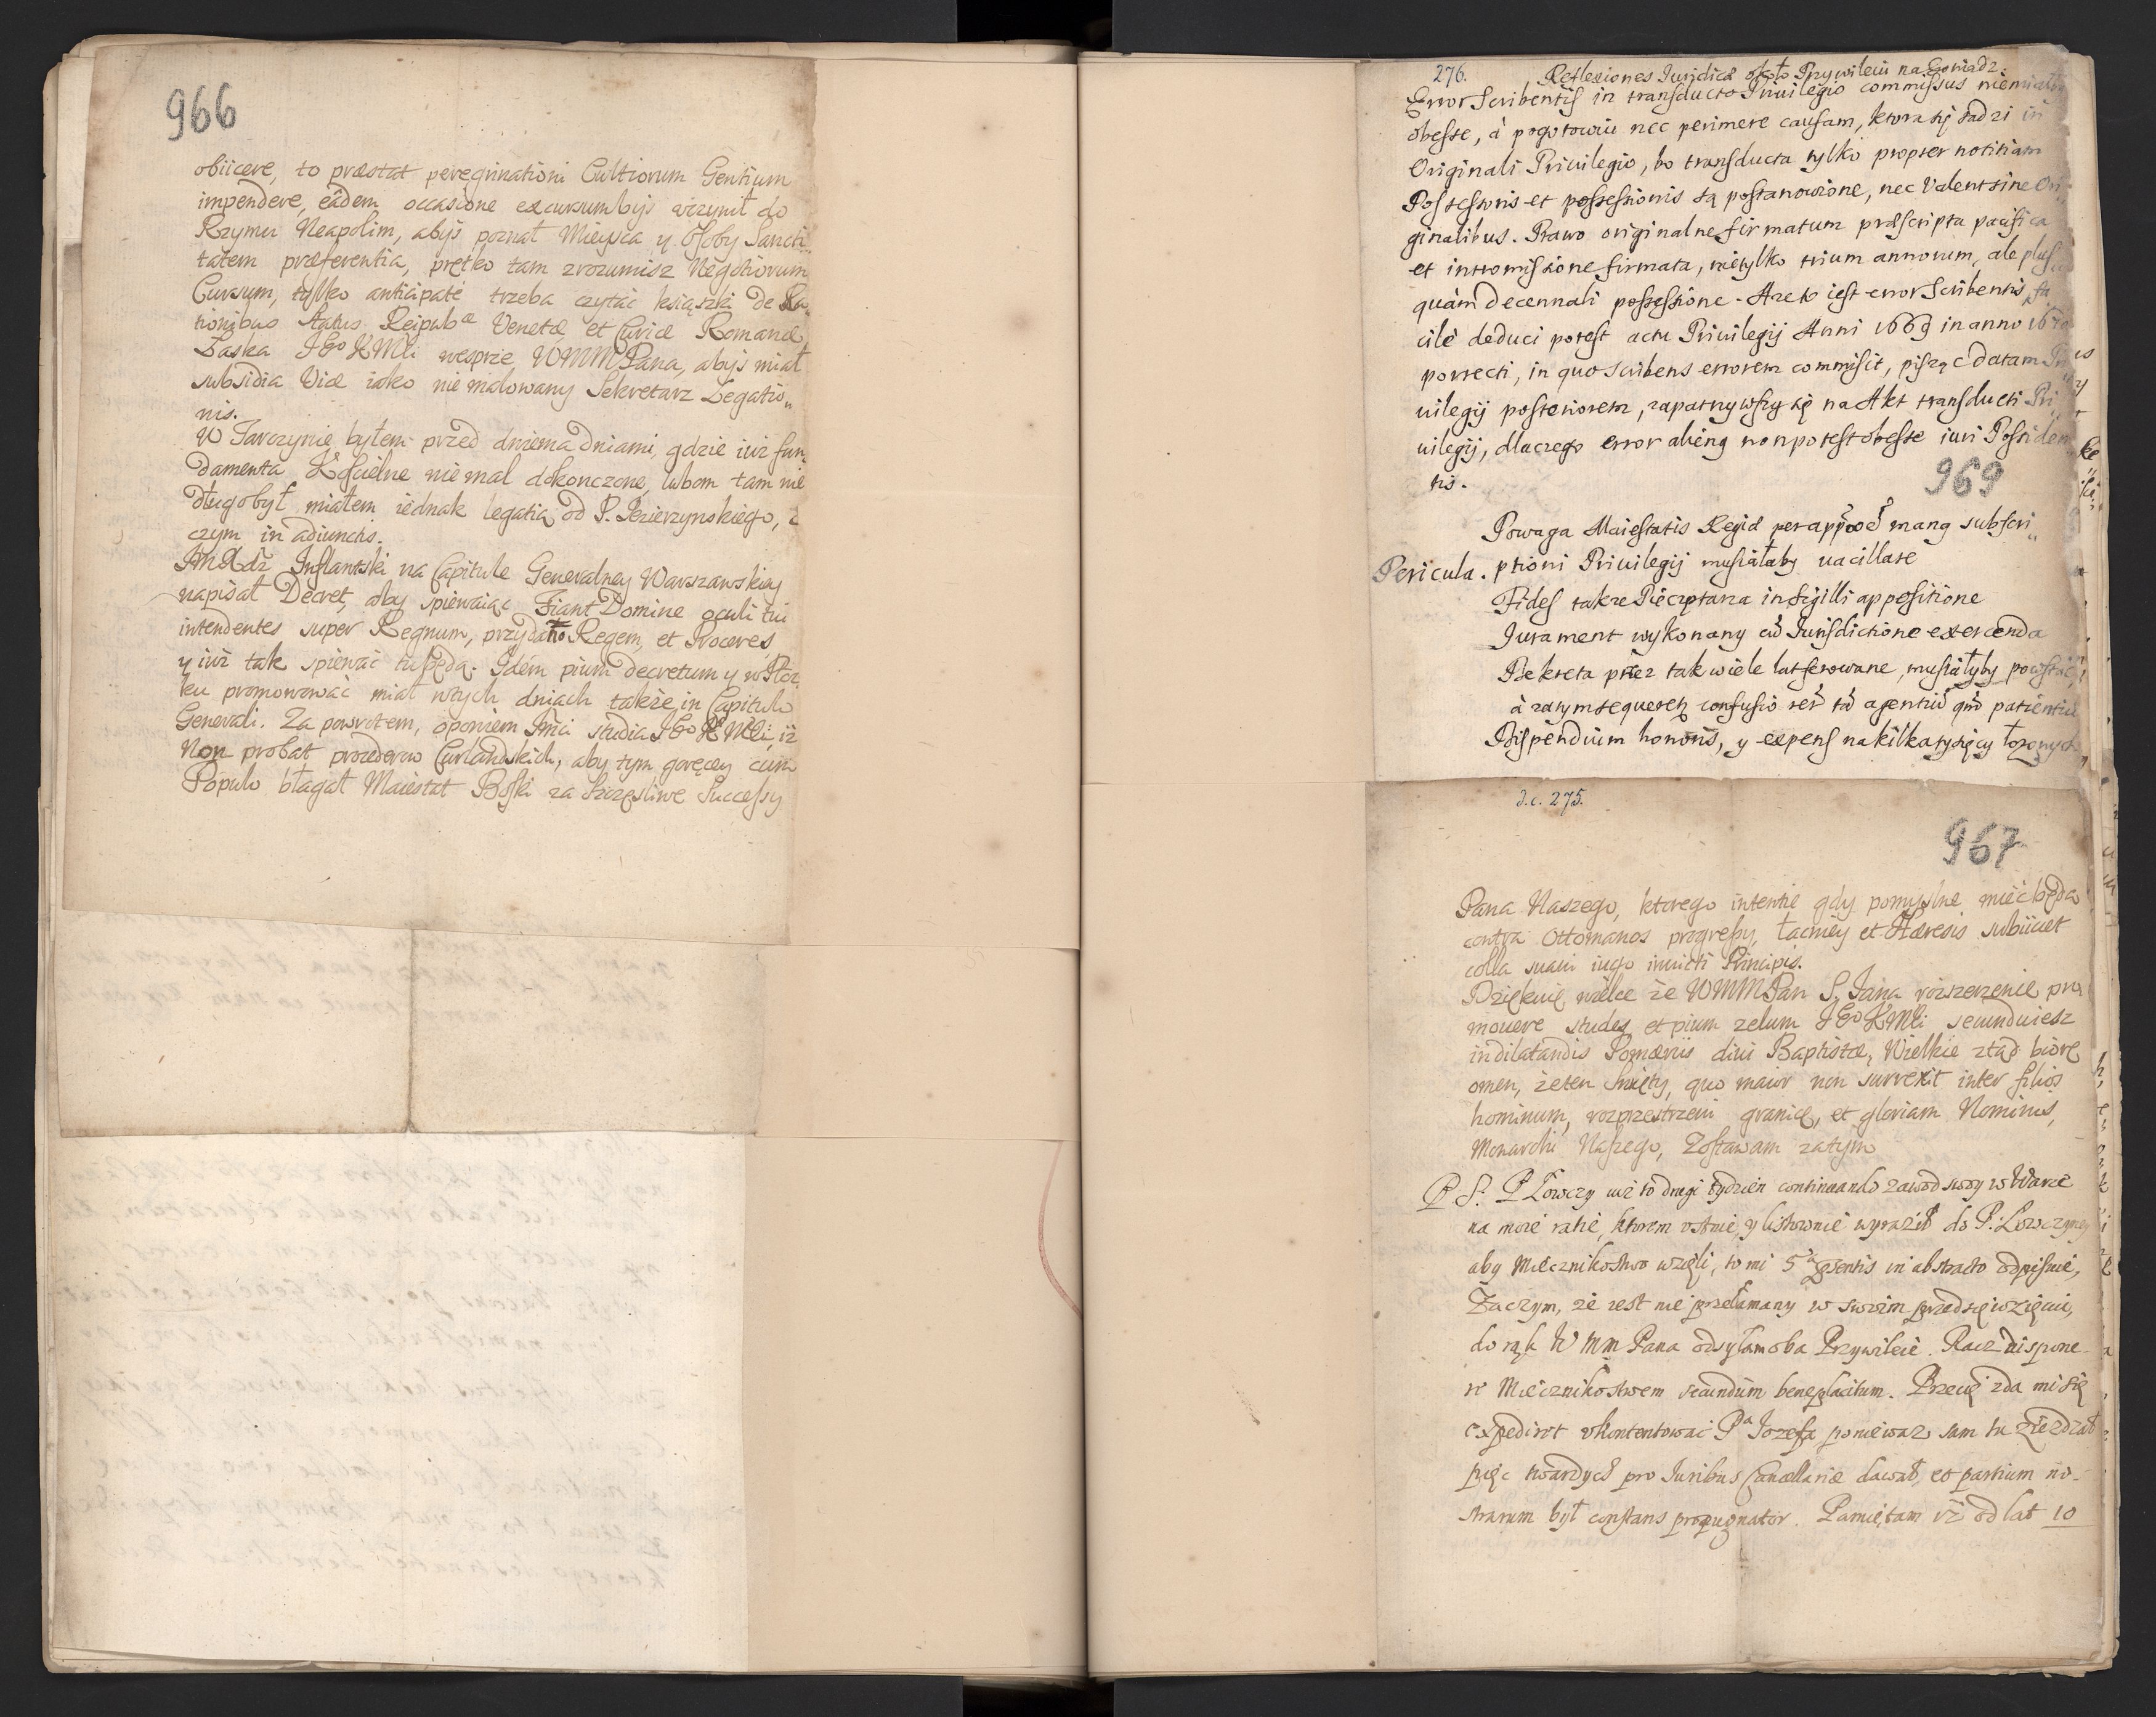 966
obiicere, to præstat peregrinationi Cultiorum Gentium
impendere, eâdem occasione excursumbyś uczynił do
Rzymu Neapolim, abyś poznał Mieysca y Osoby Sancti„
tatem præferentia, prętko tam zrozumisz Negotiorum
Cursum, tylko anticipaté trzeba czytać książki de Ra„
tionibus status Reipubᵃᵉ Venetæ et Curiæ Romanæ
Łaska JEº KMCi wesprze WMMPana, abyś miał
subsidia Viæ iako nie malowany Sekretarz Legatio„
nis.
W Tarczynie byłem przed dwiema dniami, gdzie iuż fun„
damenta Kościelne nie mal dokonczone, lubom tam nie
długo był miałem iednak legatią od P. Jezierzynskiego, o
czym in adiunctis.
JMXdz Inflantski na Capitule Generalney Warszawskiey
napisał Decret, aby spiewaiąc Fiant Domine oculi tui
intendentes super Regnum, przydano Regem, et Proceres,
y iuż tak spiewać tu będą. Idem pium decretum y w Płoc„
ku promowować miał w tych dniach także in Capitulo
Generali. Za powrotem, oponiem Jmci studia JEº KMCi, iż
Non probat procederow Curlandskich, aby tym goręcey cum
Populo błagał Maiestat Boski za Szczęsliwe Successy
276.
Reflexiones Juridicæ około Przywileiu na Goniądz.
Error Scribentis in transducto Priuilegio commissus nie miałby
obesse, à pogotowiu nec perimere causam, ktora się sądzi in
Originali Priuilegio, bo transducta tylko propter notitiam
Possessoris et possessionis są postanowione, nec valent sine Ori„
ginalibus. Prawo originalne firmatum præscripta pacifica
et intromissione firmata, nie tylko trium annorum, ale plus
quàm decennali possessione. Aże to iest error Scribentis, fa
cile deduci potest actu Priuilegij Anni 1669 in anno 1670
porrecti, in quo scribens errorem commisit, pisząc datam Pri
uilegij posteriorem, zapatrzywszy się na Akt transducti Pri„
uilegij, dlaczego error aliena non potest obesse iuri Possiden„
tis.
969
Powaga Maiestatis Regiæ per manq subscri„
Pericula. ptioni Priuilegij musiałaby vacillare
Fides także Pieczętarza in sigilli appositione
Jurament wykonany cũ Jurisdictione exercenda
Dekreta przez tak wiele lat ferowane, musiałyby powstać,
à zatym sequeretʒ confusio rerũ tã agentiũ qm̃ patientiũ
Dispendium honoris, y expens na kilka tysięcy łożonych
d.c. 275.
967
Pana Naszego, ktorego intentie gdy pomyslne mieć będą
contra Ottomanos progressy, łacniey et Hæresis subiiciet
colla suavi iugo inuicti Principis.
Dziękuię wielce że WMMPan S. Jana rozszerzenie pro
mouere studes, et pium zelum JEº KMCi secunduiesz
in dilatandis Pomœriis diui Baptistæ, Wielkie ztąd biorę
omen, że ten Swięty, quo maior non surrexit inter filios
hominum, rozprzestrzeni granice, et gloriam Nominis,
Monarchi Naszego, Zostawam zatym
P. S. P Łowczy iuż to drugi tydzień continuando zawod swoy w Warce
na moie ratie, ktorem ustnie, y listownie wyraził do P. Łowczyney
aby Miecznikostwo wzięli, to mi 5ª præsentis in abstracto odpisuie,
Zaczym, że iest nie przełamany w swoim przedsięwzięciu,
do rąk WMM Pana odsyłam oba Przywileie. Racz dispone„
re Miecznikostwem secundum beneplacitum. Przecię zda mi się
expedirot ukontentować Pª Jozefa ponieważ sam tu zieżdżał
pięc twardych pro Juribus Cancellariæ dawał, et partium no„
strarum był constans propugnator. Pamiętam iż od lat 10